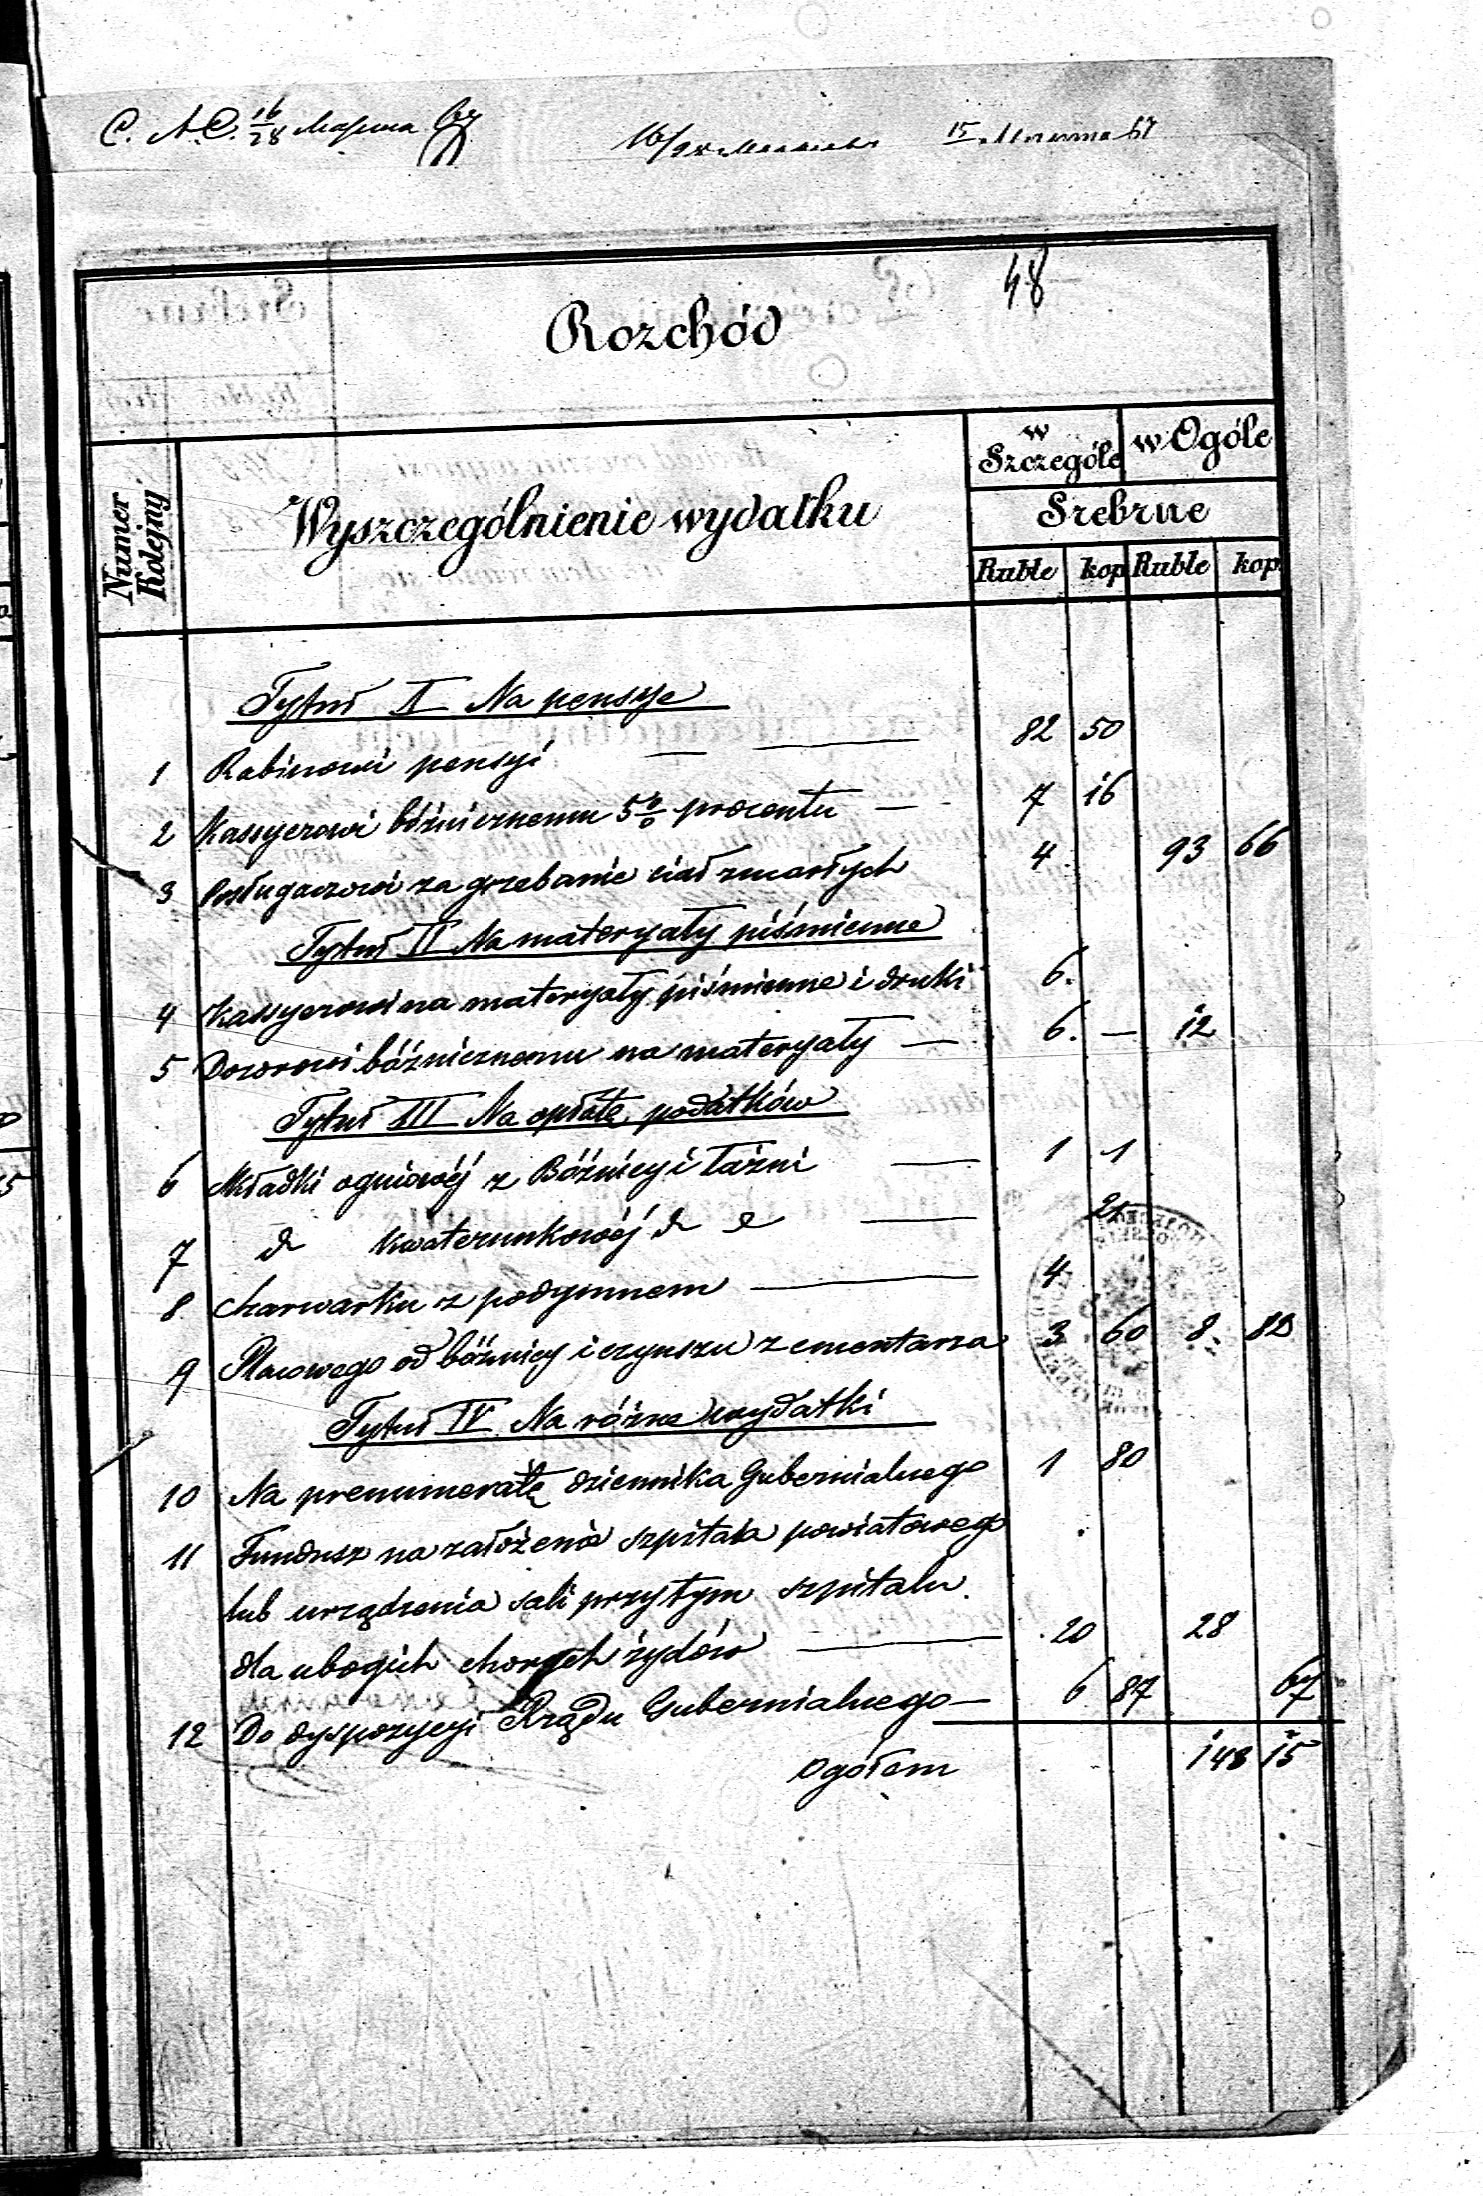 48
Rozchód
Numer Kolejny
Wyszczególnienie wydatku
w Szczególe
w Ogóle
Srebrne
Ruble kop Ruble kop.
Tytuł I Na pensye
1 Rabinowi pensyi — — 82 50
2 Kassyerowi bóżnicznemu 5 % procentu — 7 16
3 Posługaczowi za grzebanie ciał zmarłych 4 93 66
Tytuł II Na materyały piśmienne
4 Kassyerowi na materyały piśmienne i druki 6.
5 Dozorowi bóżnicznemu na materyały — 6. — 12
Tytuł III Na opłatę podatków
6 Składki ogniowéj z Bóźnicy i Łaźni — 1 1
7 d kwaterunkowéj d d — 21
8 Szarwarku z podymnem — 4
9 Placowego od bóżnicy i czynszu z cmentarza 3 60 8. 82
Tytuł IV Na różne wydatki
10 Na prenumeratę dziennika Gubernialnego 1 80
11 Fundusz na założenie szpitala powiatowego
lub urządzenia sali przytym szpitalu
dla ubogich chorych żydów — 20 28
12 Do dyspozycyi Rządu Gubernialnego — 6 87 67
Ogółem 148 15